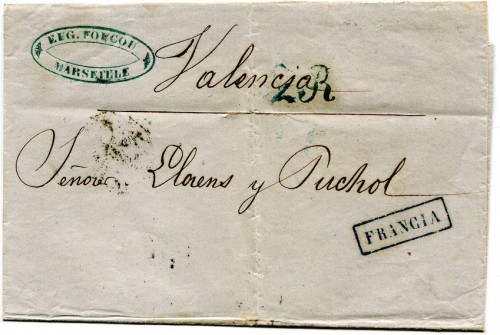 EUG. FORCON
MARSEILLE
Valencia
2R
Señores Llorens y Puchol
FRANCIA